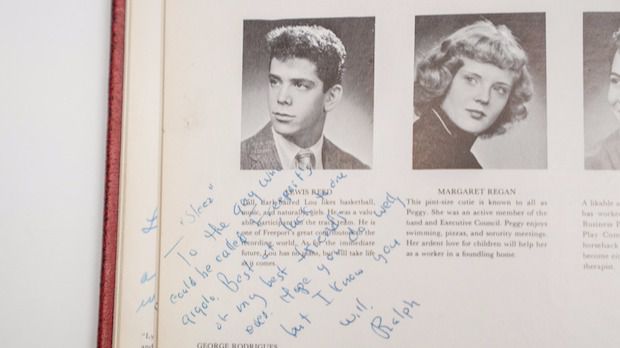 LEWIS REED
Tall, dark-haired Lou likes basketball,
music, and naturally, girls. He was a valu-
able participant on the track team. He is
one of Freeport's great contributors to the
recording world. As for the immediate
future, Lou has no plans, but will take life
as it comes.
To the guy who
could be called
gigolo. Best of luck to one
of my best
ones. Hope you do well
but I know you
will
Ralph
MARGARET REGAN
This post-size cutie is known to all as
Peggy. She was an active member of the
band and Executive Council. Peggy enjoys
swimming, pizzas, and sorority meetings.
Her ardent love for children will help her
as a worker in a foundling home.
A likable
has worke
Business
Play Com
horseback
become ei
therapist.
GEORGE RODRIGUES
"Ly
and